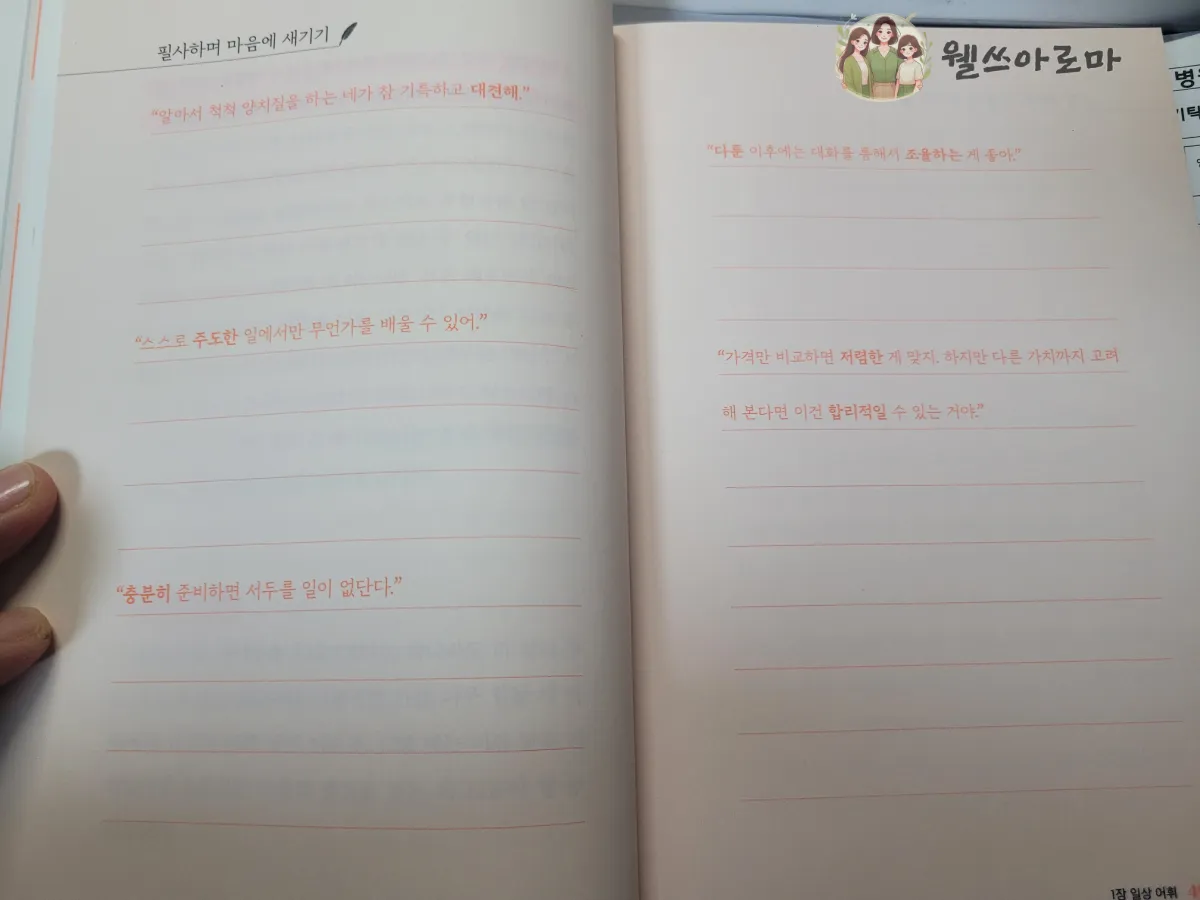 필사하며 마음에 새기기
“알아서 척척 양치질을 하는 네가 참 기특하고 대견해.”
“스스로 주도한 일에서만 무언가를 배울 수 있어.”
“충분히 준비하면 서두를 일이 없단다.”
웰쓰아로마
“다툰 이후에는 대화를 통해서 조율하는 게 좋아.”
“가격만 비교하면 저렴한 게 맞지. 하지만 다른 가치까지 고려
해 본다면 이건 합리적일 수 있는 거야.”
1장 일상 어휘